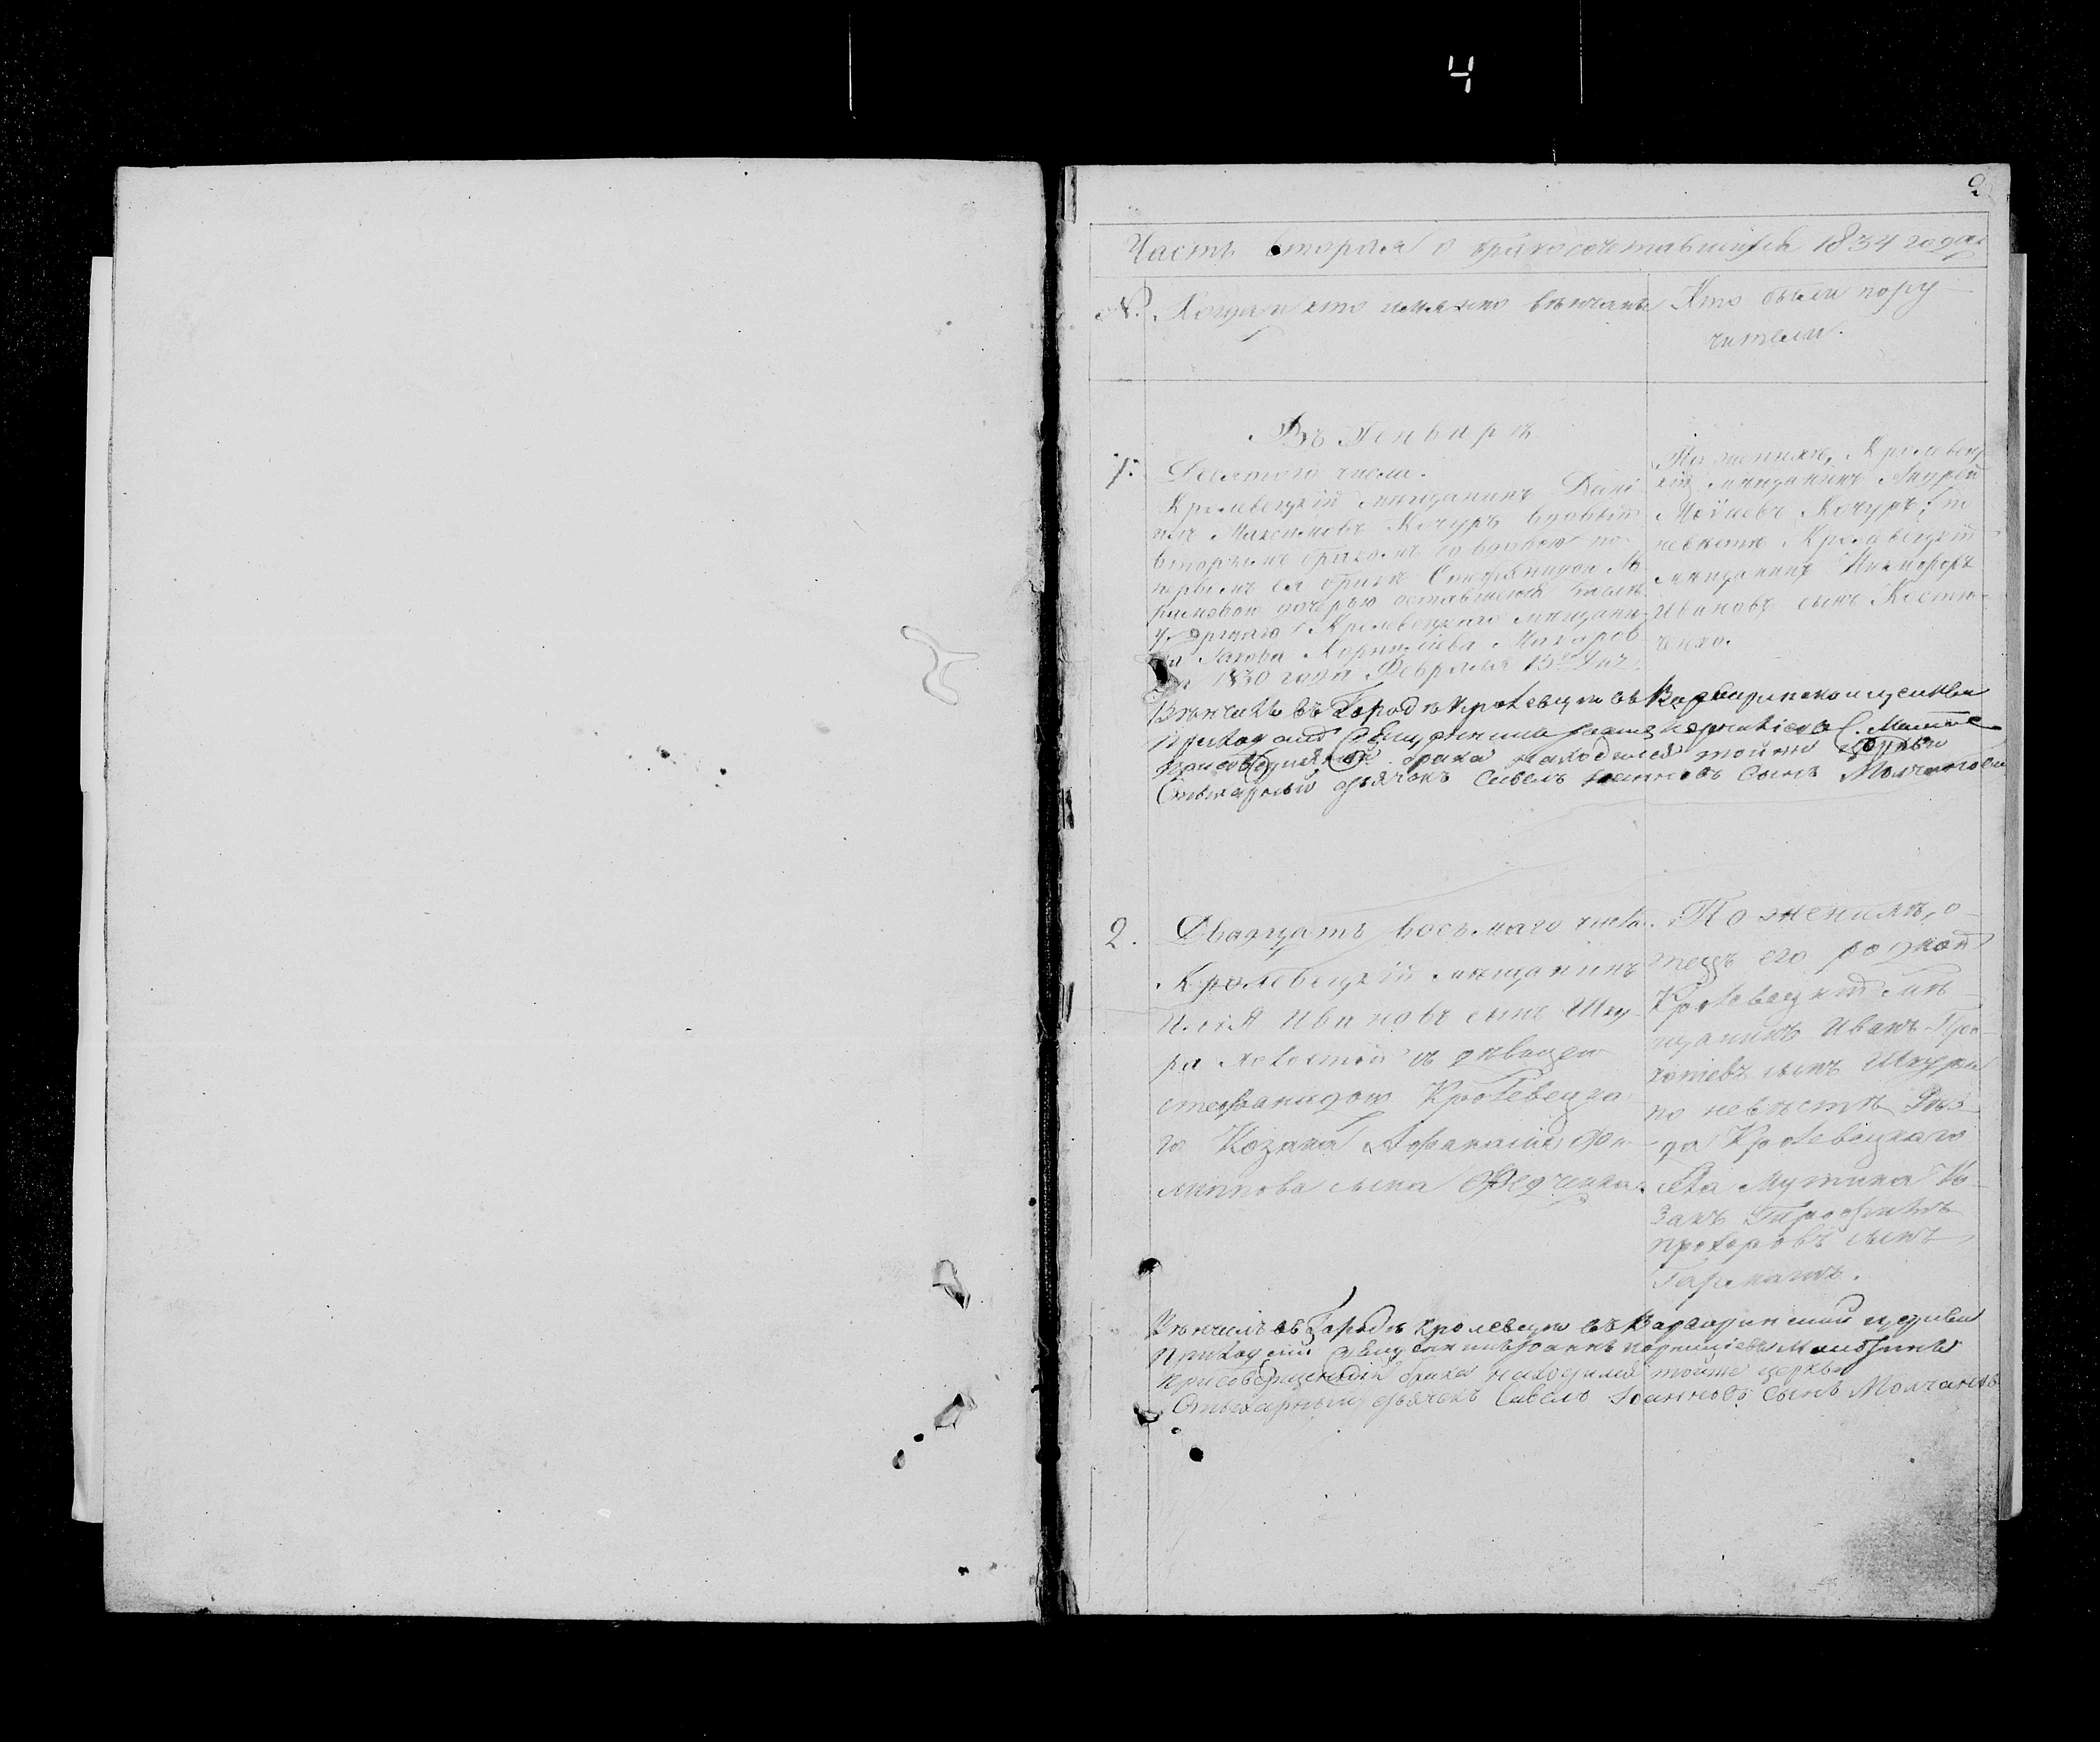 4
2
Часть вторая о бракосочетавшихся 1834 года
№. Когда и кто именно венчаны
Кто были пору-
чители.
Въ Генваре
1. Десятого числа.
Кролевецкій мещанинъ Дани-
илъ Максимовъ Кочуръ вдовый
вторымъ бракомъ со вдовою по
первомъ ея браке
дочерью оставшеюся после
умершаго Кролевецкаго мещани-
на Якова Корнилiева
1830 года Февраля 15 дня.
По женихе, Кролевец-
кій мещанинъ Андрей
Моисеевъ Кочуръ; по
невесте Кролевецкій
мещанинъ Никифоръ
Ивановъ сынъ Костю-
ченко.
Венчалъ въ Городе Кролевце въ Варваринской церкви
Приходскій Священникъ Іоаннъ Корнилiевъ С.
присовершеніи брака находился тойже церкви
Стихарный дьячокъ Савелъ Іоанновъ Сынъ Молчановъ
2. Двадцать восьмаго числа.
Кролевецкій мещанинъ
Илія Ивановъ сынъ Шку-
ра холостой съ девицею
стефанидою Кролевецка-
го Козака Афанасія Фи-
липпова сына Федченка.
По женихе, о-
тецъ его родной
Кролевецкій ме-
щанинъ Иванъ Про-
копiевъ сынъ Шкура
по невесте Уез-
да Кролевецкаго
села Мутина Ко-
закъ Трофимъ
прохоровъ сынъ
Гармашъ.
Венчалъ въ Городе Кролевце въ Варваринской церкви
Приходскій Священникъ Іоаннъ Корнилiевъ
присовершеніи брака находился тойже церкви
Стихарный дьячекъ Савелъ Іоанновъ Сынъ Молчановъ